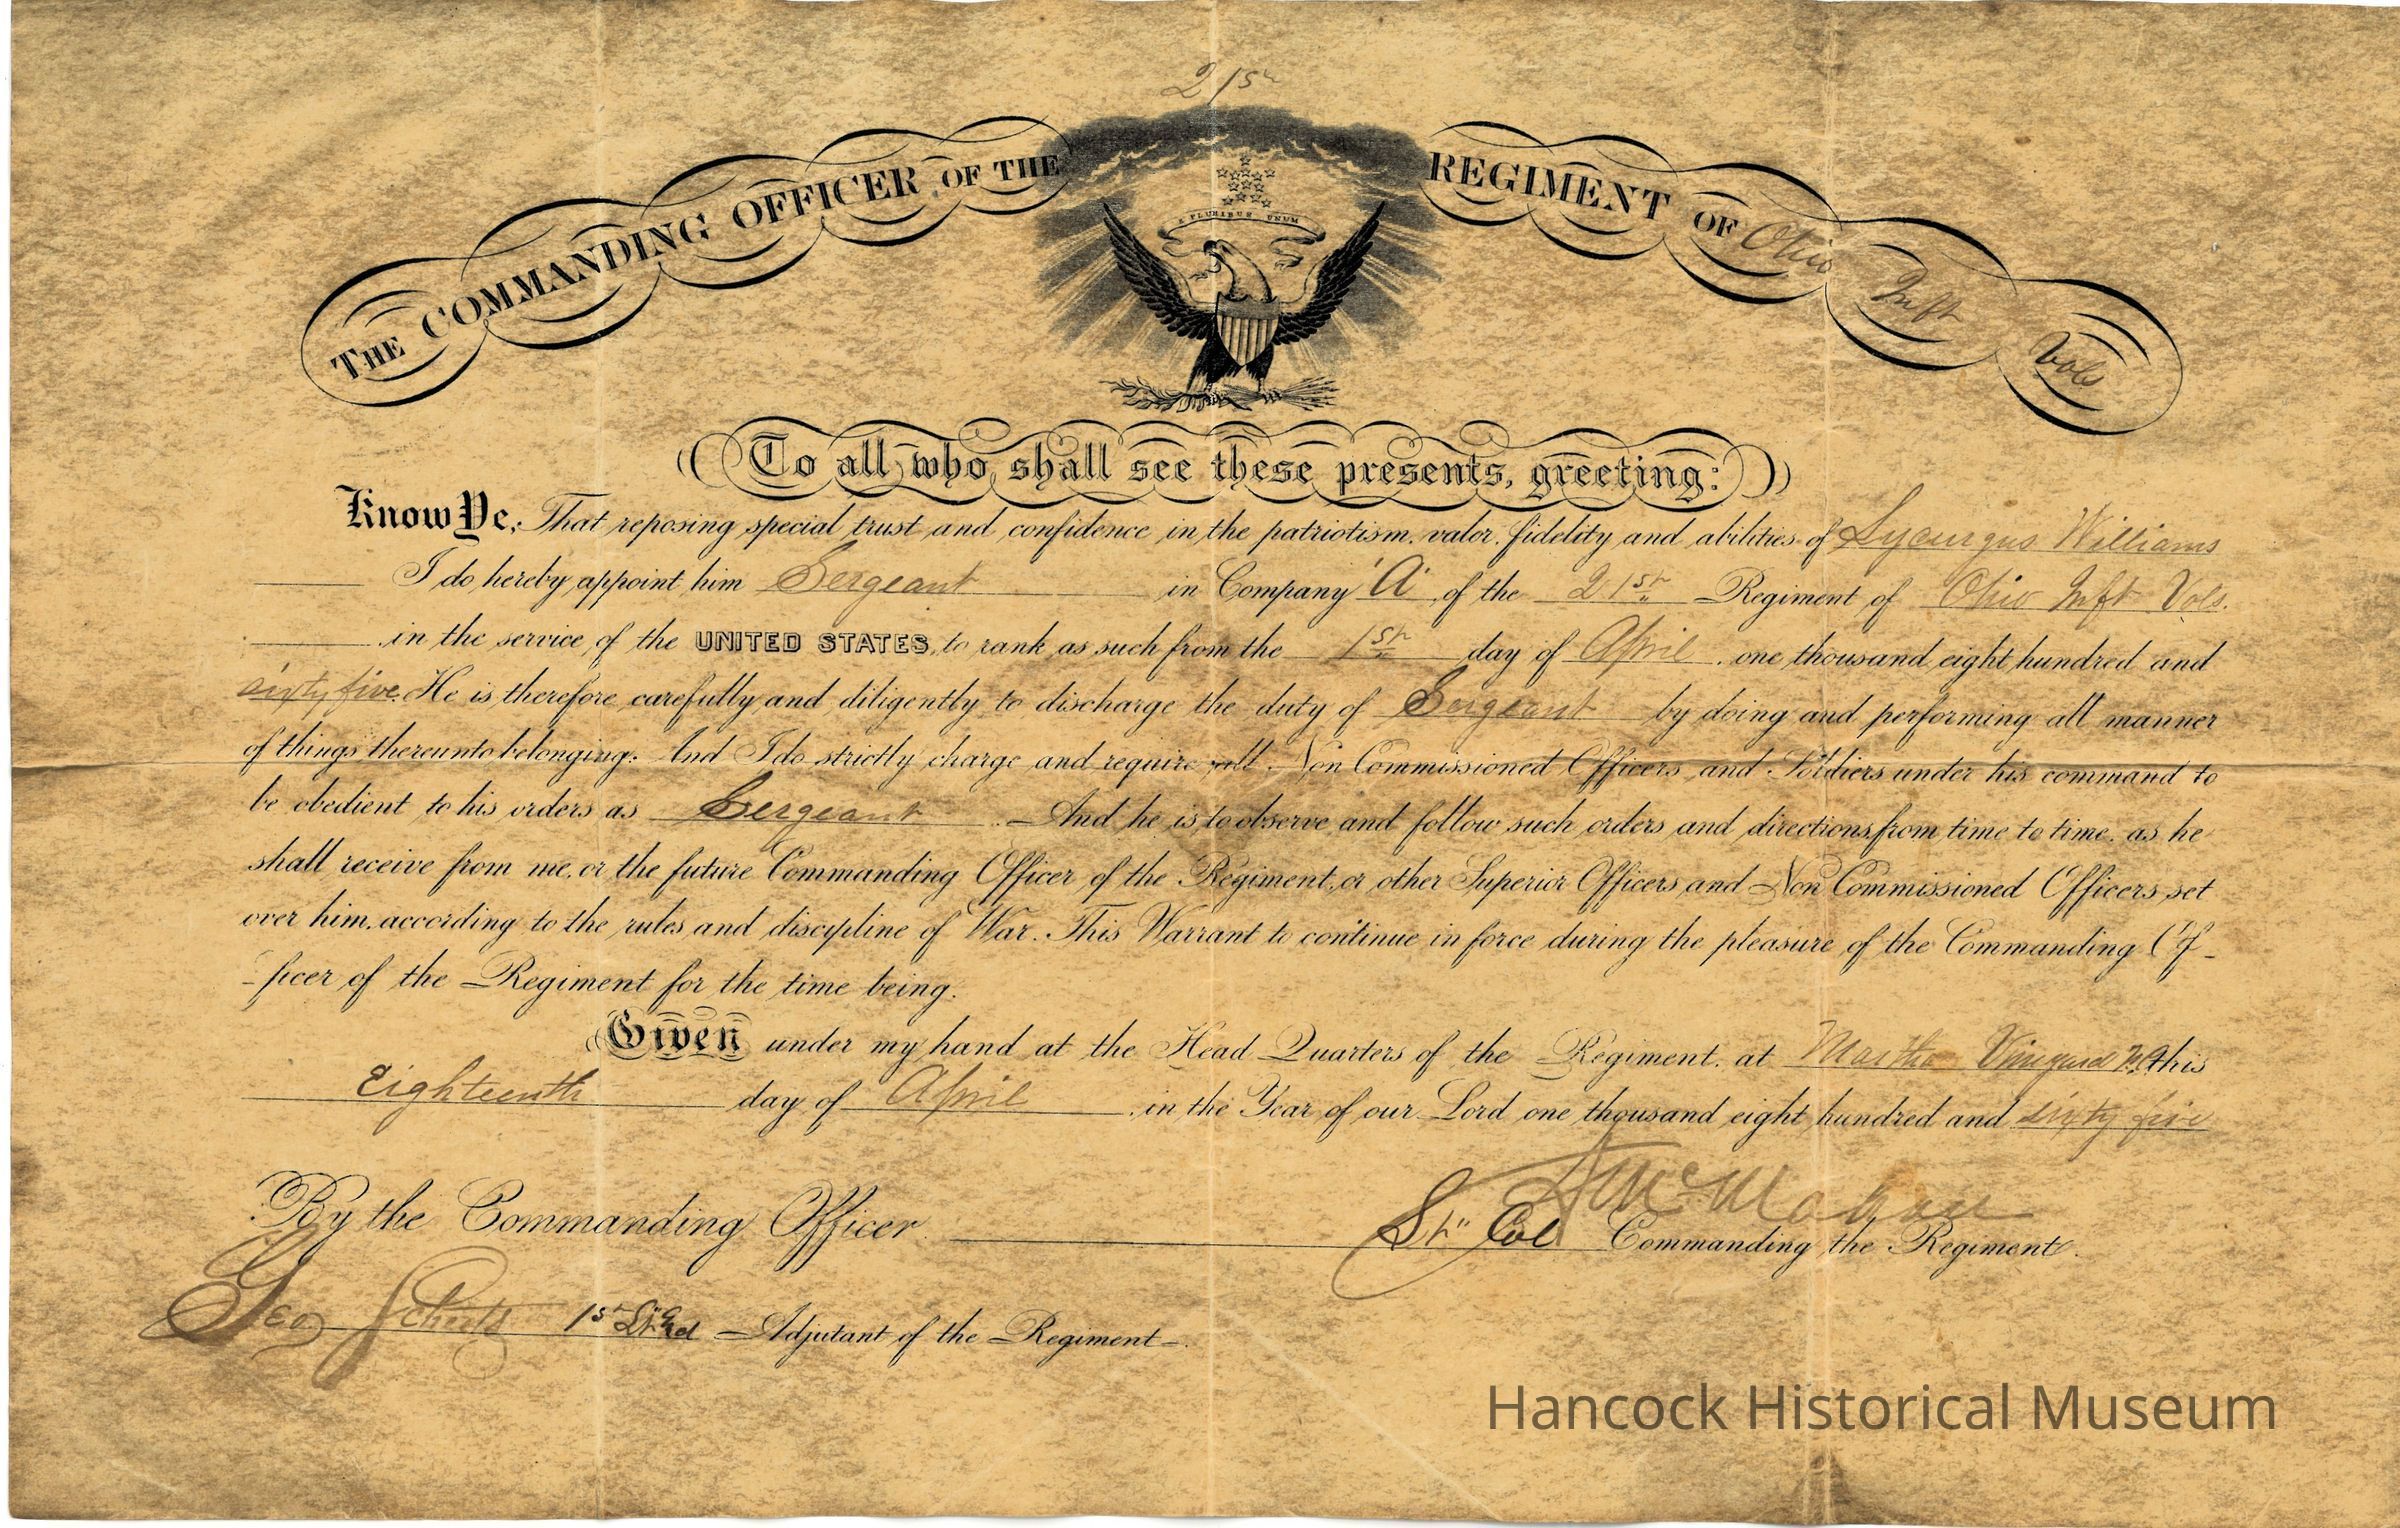 21st
THE COMMANDING OFFICER OF THE REGIMENT OF Ohio Inft Vols
E PLURIBUS UNUM
To all who shall see these presents, greeting:
Know Ye, That reposing special trust and confidence in the patriotism, valor, fidelity and abilities of Lycurgus Williams
I do hereby appoint him Sergeant in Company "A" of the 21st Regiment of Ohio Inft Vols.
in the service of the UNITED STATES, to rank as such from the 1st day of April one thousand eight hundred and
sixty five. He is therefore carefully and diligently to discharge the duty of Sergeant by doing and performing all manner
of things thereunto belonging. And I do strictly charge and require all Non Commissioned Officers and Soldiers under his command to
be obedient to his orders as Sergeant And he is to observe and follow such orders and directions from time to time, as he
shall receive from me, or the future Commanding Officer of the Regiment, or other Superior Officers and Non Commissioned Officers set
over him, according to the rules and discipline of War. This Warrant to continue in force during the pleasure of the Commanding Of-
-ficer of the Regiment for the time being.
Given under my hand at the Head Quarters of the Regiment, at Martha Vinyard this
Eighteenth day of April in the Year of our Lord one thousand eight hundred and sixty five
McMahan
By the Commanding Officer. Lt Col Commanding the Regiment.
Geo 1st Lt Adjutant of the Regiment
Hancock Historical Museum